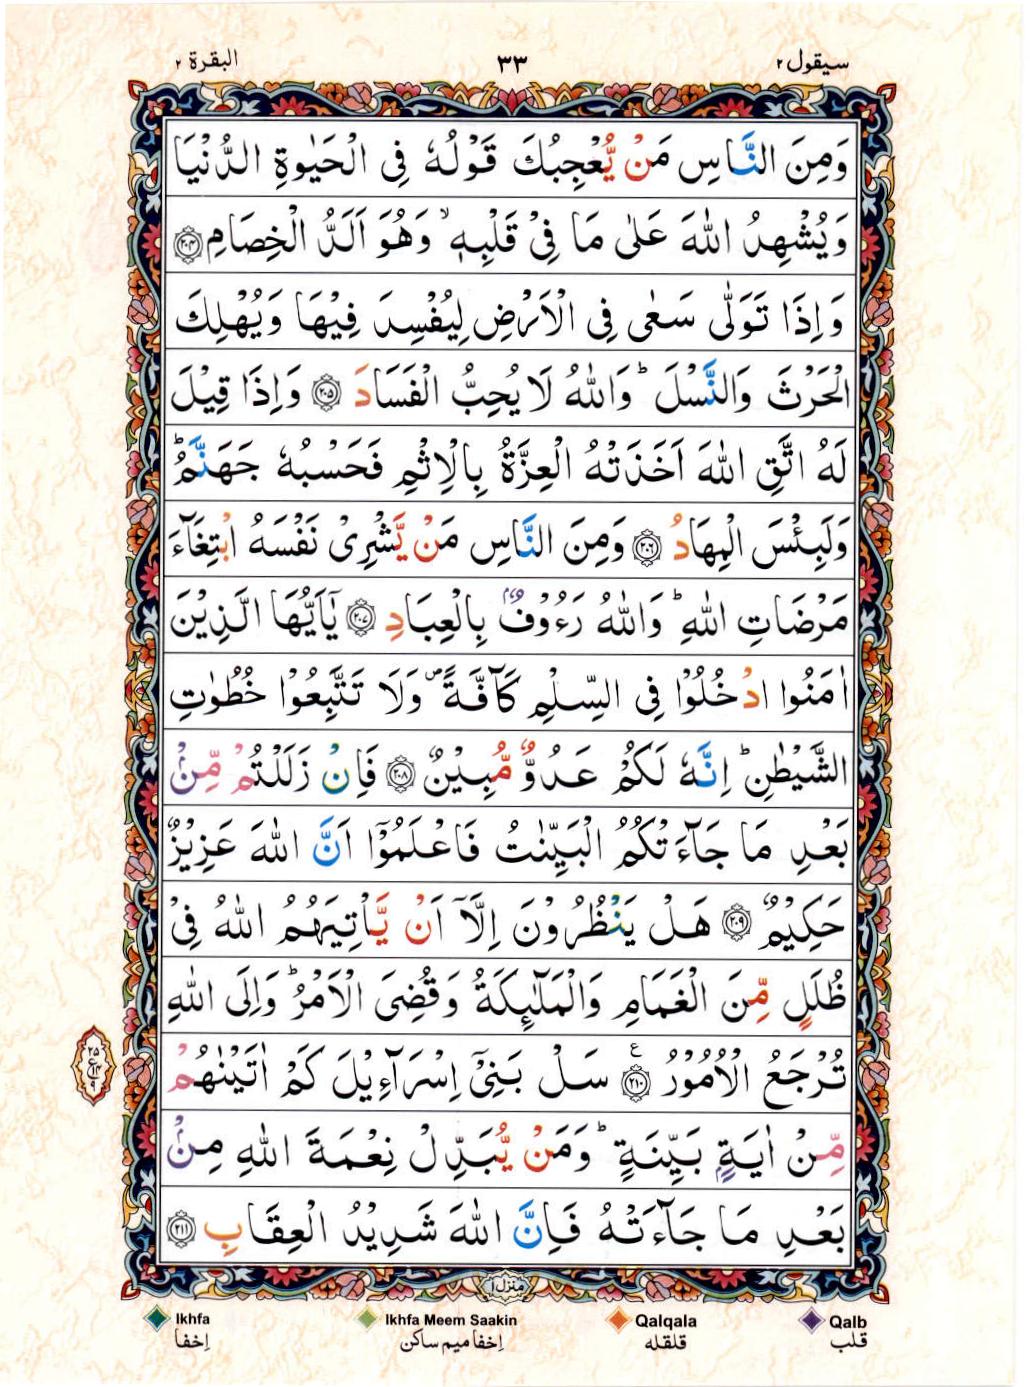 سيقول ٢ ٣٣ البقرة ٢
وَمِنَ النَّاسِ مَنْ يُّعْجِبُكَ قَوْلُهٗ فِى الْحَيٰوةِ الدُّنْيَا
وَيُشْهِدُ اللّٰهَ عَلٰى مَا فِىْ قَلْبِهٖ ۙ وَهُوَ اَلَدُّ الْخِصَامِ ﴿٢٠٤﴾
وَاِذَا تَوَلّٰى سَعٰى فِى الْاَرْضِ لِيُفْسِدَ فِيْهَا وَيُهْلِكَ
الْحَرْثَ وَالنَّسْلَ ؕ وَاللّٰهُ لَا يُحِبُّ الْفَسَادَ ﴿٢٠٥﴾ وَاِذَا قِيْلَ
لَهُ اتَّقِ اللّٰهَ اَخَذَتْهُ الْعِزَّةُ بِالْاِثْمِ فَحَسْبُهٗ جَهَنَّمُ ؕ
وَلَبِئْسَ الْمِهَادُ ﴿٢٠٦﴾ وَمِنَ النَّاسِ مَنْ يَّشْرِىْ نَفْسَهُ ابْتِغَآءَ
مَرْضَاتِ اللّٰهِ ؕ وَاللّٰهُ رَءُوْفٌۢ بِالْعِبَادِ ﴿٢٠٧﴾ يٰٓاَيُّهَا الَّذِيْنَ
اٰمَنُوا ادْخُلُوْا فِى السِّلْمِ كَآفَّةً ۪ وَلَا تَتَّبِعُوْا خُطُوٰتِ
الشَّيْطٰنِ ؕ اِنَّهٗ لَكُمْ عَدُوٌّ مُّبِيْنٌ ﴿٢٠٨﴾ فَاِنْ زَلَلْتُمْ مِّنْۢ
بَعْدِ مَا جَآءَتْكُمُ الْبَيِّنٰتُ فَاعْلَمُوْٓا اَنَّ اللّٰهَ عَزِيْزٌ
حَكِيْمٌ ﴿٢٠٩﴾ هَلْ يَنْظُرُوْنَ اِلَّآ اَنْ يَّاْتِيَهُمُ اللّٰهُ فِىْ
ظُلَلٍ مِّنَ الْغَمَامِ وَالْمَلٰٓئِكَةُ وَقُضِىَ الْاَمْرُ ؕ وَاِلَى اللّٰهِ
تُرْجَعُ الْاُمُوْرُ ﴿٢١٠﴾ ع سَلْ بَنِىْٓ اِسْرَآءِيْلَ كَمْ اٰتَيْنٰهُمْ
٢٥
ع
١٤
٩
مِّنْ اٰيَةٍۭ بَيِّنَةٍ ؕ وَمَنْ يُّبَدِّلْ نِعْمَةَ اللّٰهِ مِنْۢ
بَعْدِ مَا جَآءَتْهُ فَاِنَّ اللّٰهَ شَدِيْدُ الْعِقَابِ ﴿٢١١﴾
منزل ١
Ikhfa Ikhfa Meem Saakin Qalqala Qalb
اِخفا اِخفا میم ساکن قلقله قلب